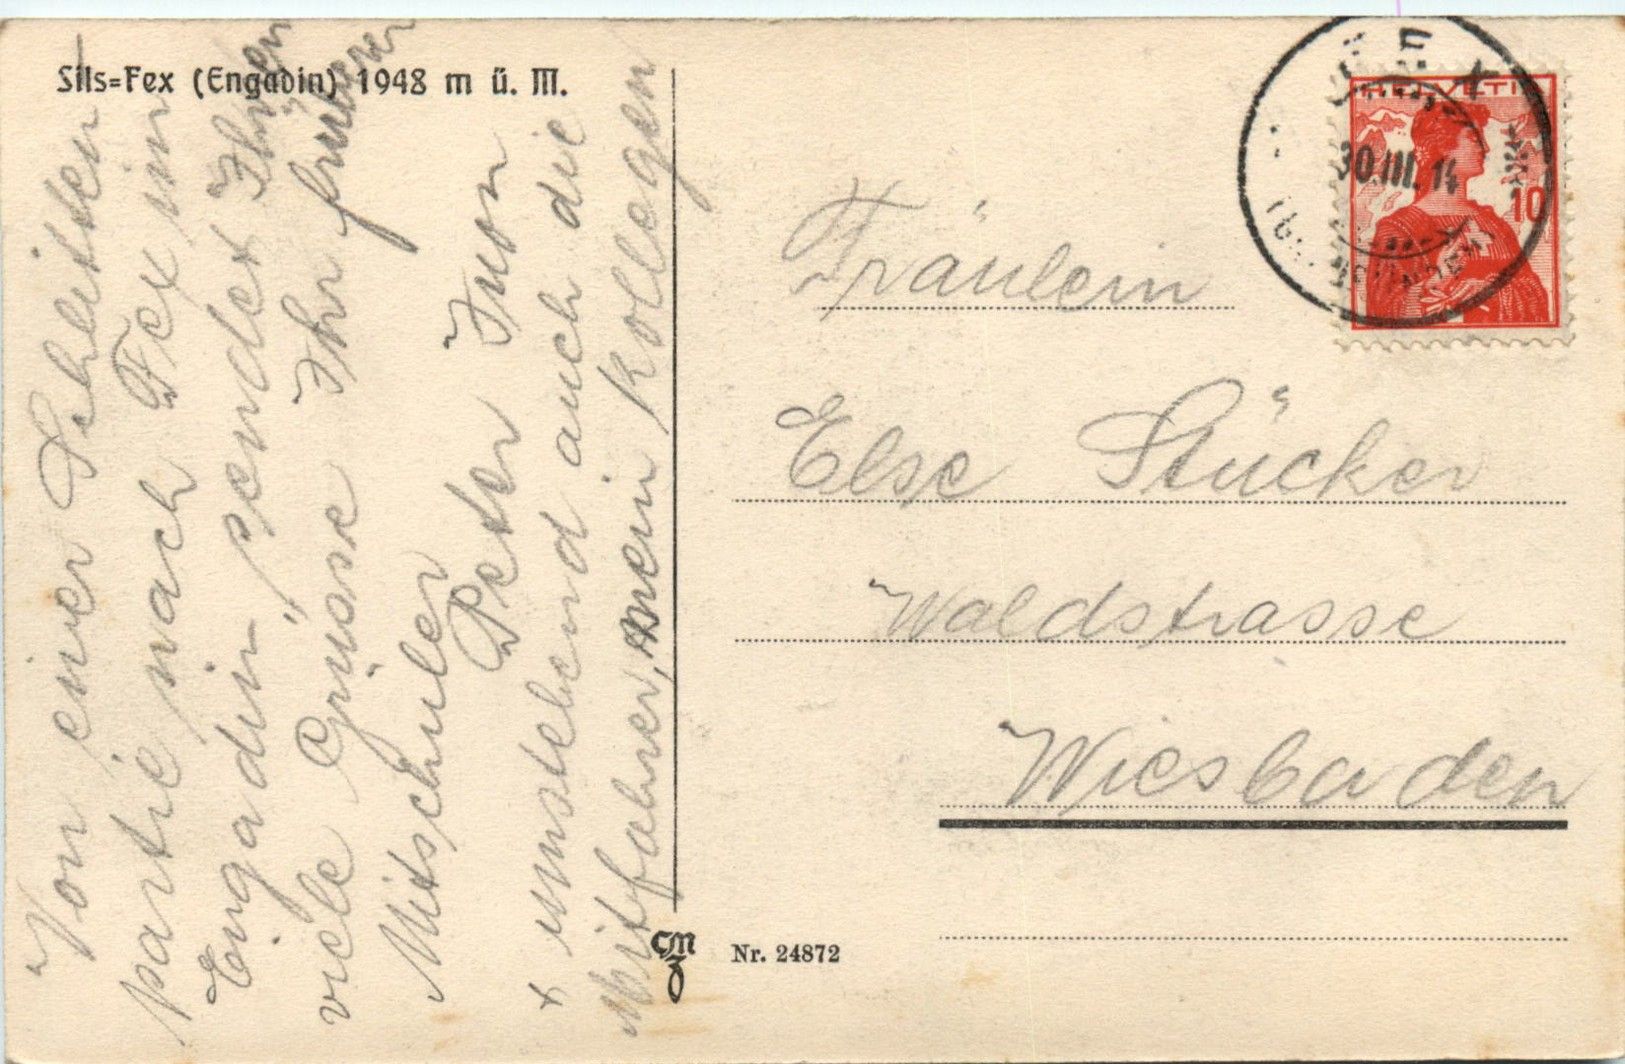 Sils=Fex (Engadin) 1948 m ü. M.
Von einer Schlitten
partie nach Fex im
Engadin sendet Ihnen
viele Grüsse Ihr früherer
Mitschüler
Peter Juon
+ umstehend auch die
Mitfahrer, mein Kollegen
Fräulein
Else Stücker
Waldstrasse
Wiesbaden
CMZ
Nr. 24872
HELVETIA
10
30.III.14